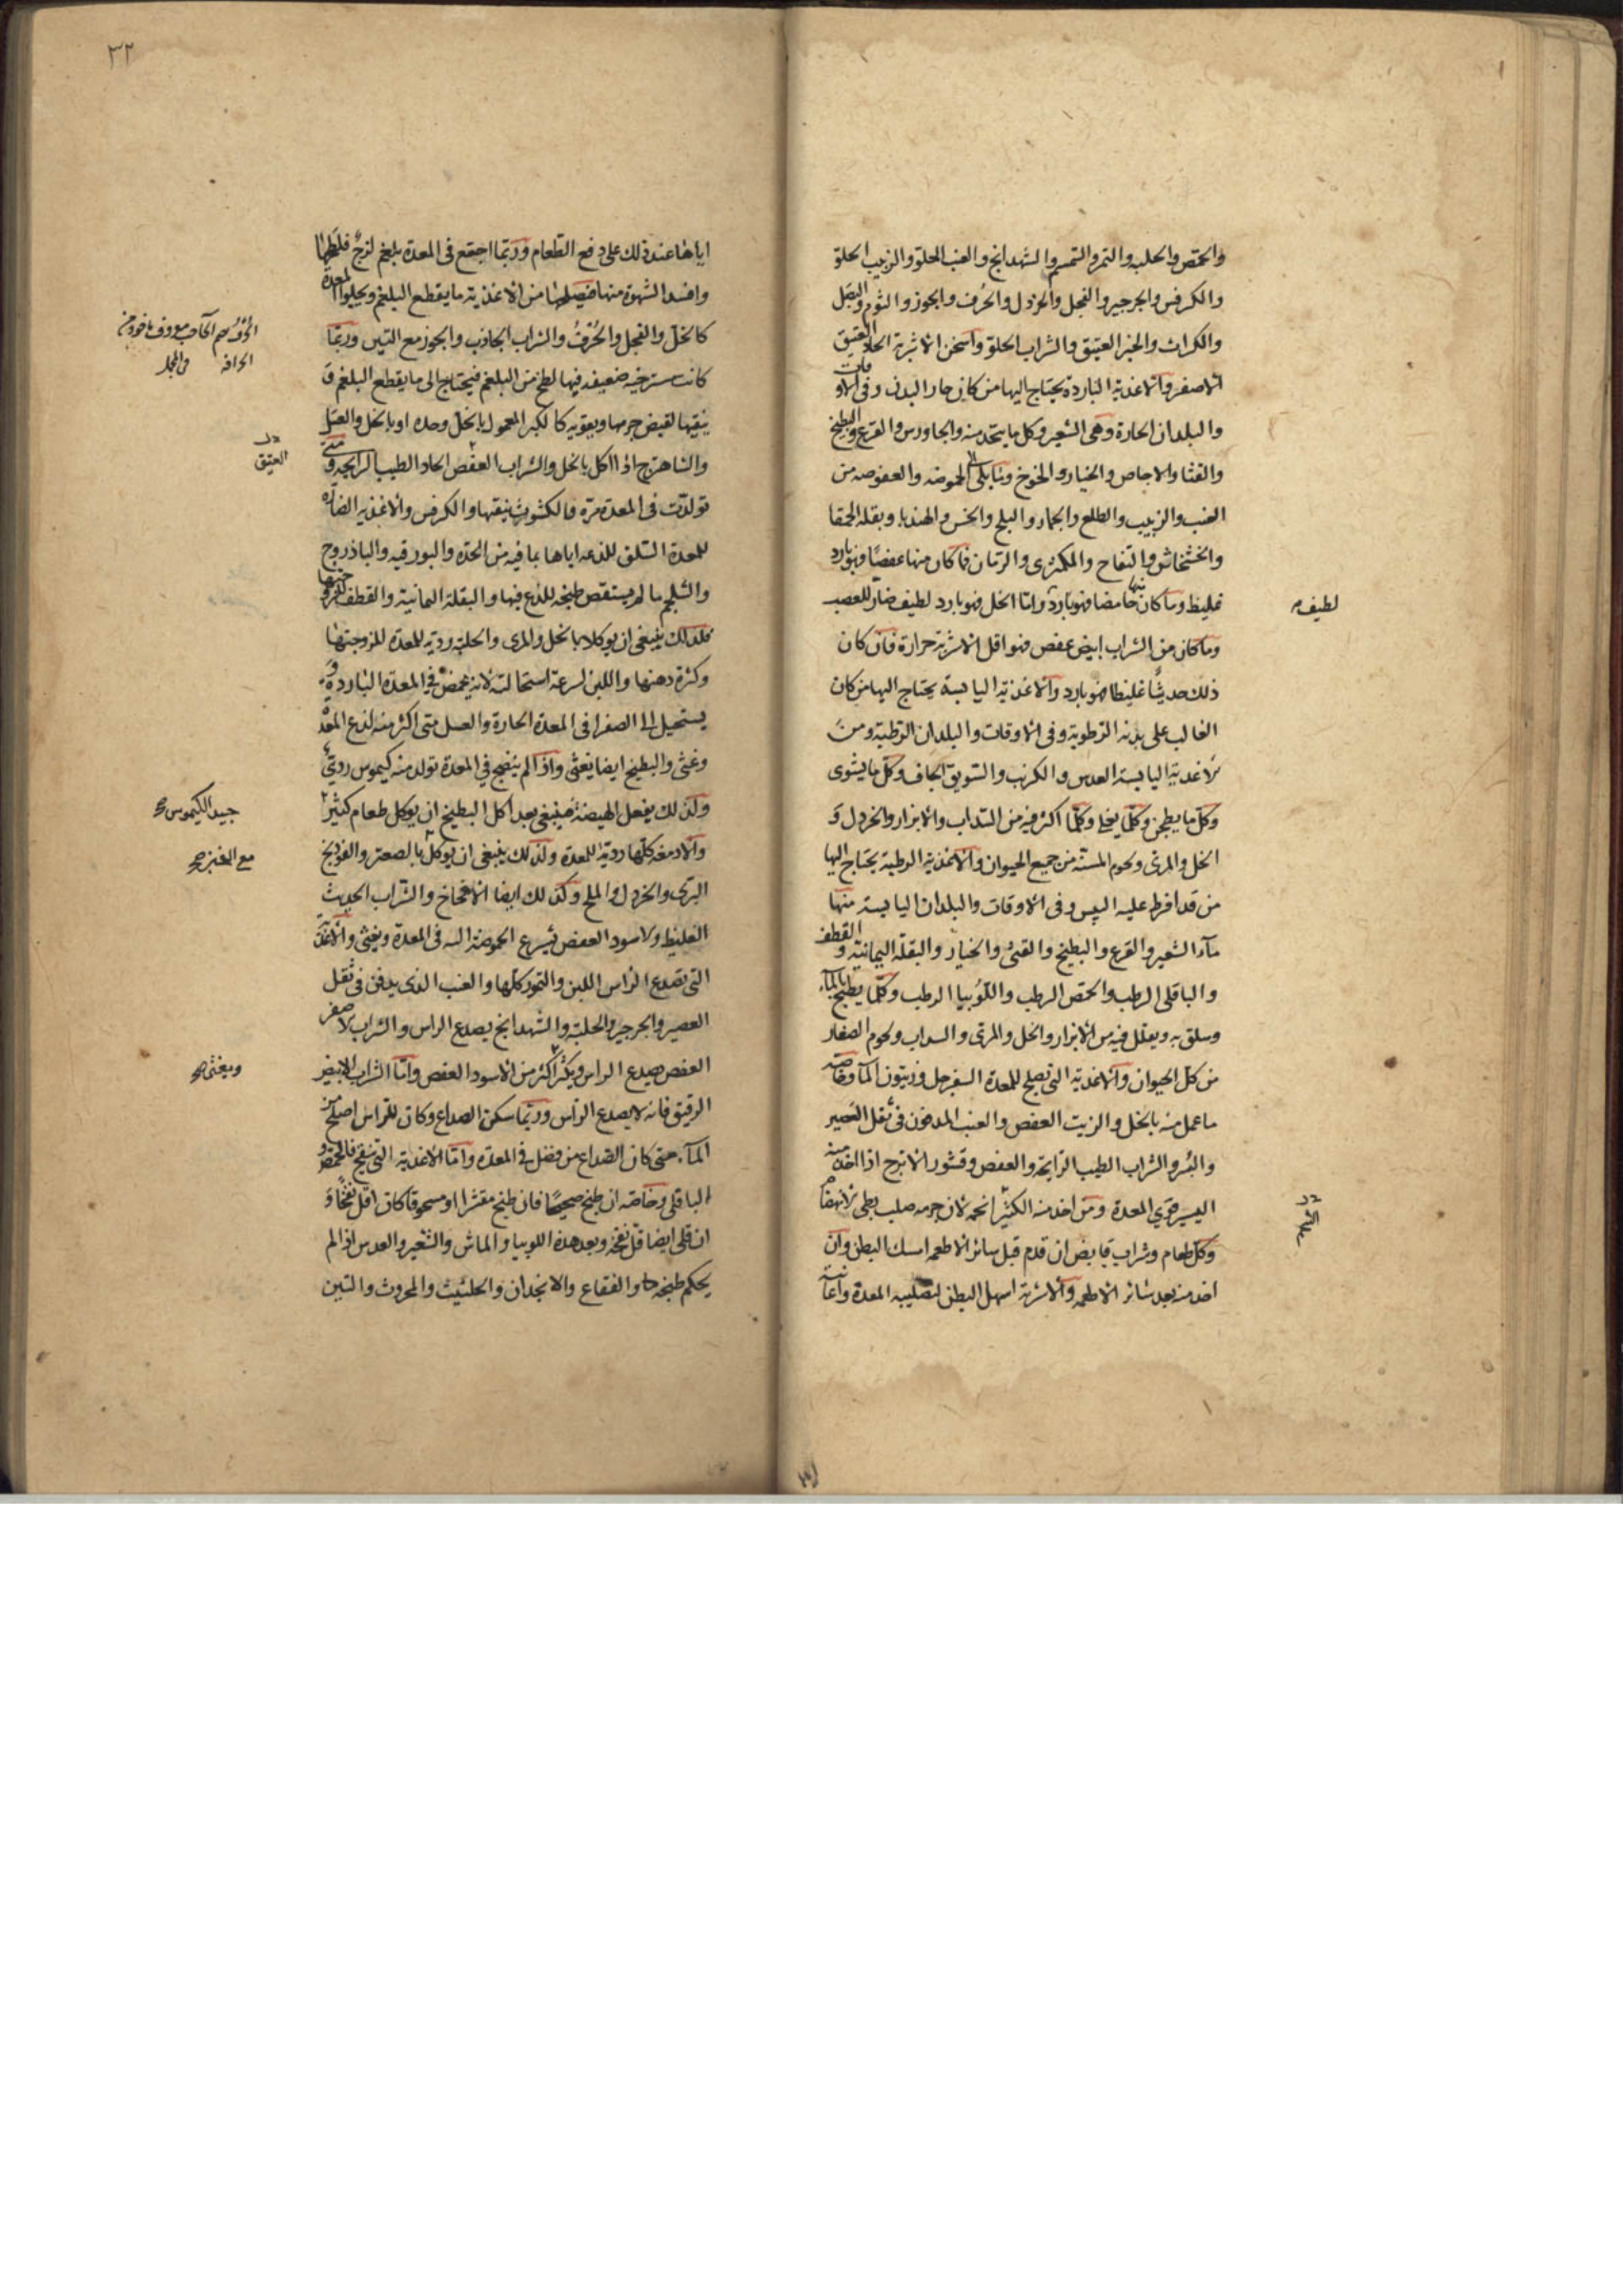 والحمص والحلبه والتمر والسمسم والشهدانج والعنب الحلو والزبيب الحلو
والكرفس والجرجير والفجل والخردل والحُرف والجوز والثوم والبصل
والكراث والخبز العتيق والشراب الحلو واسخن الاشربة الحاد العتيق
الاصفر والاغذية الباردة يحتاج اليها من كان حار البدن وفى الاوقات
والبلدان الحارة وهى الشعير وكل ما يتخذ منه والجاورس والقرع والبطيخ
والقثا والاجاص والخيار والخوخ وما يلى الى الحموضه والعفوصه من
العنب والزبيب والطلع والجمار والبلح والخس والهندبا وبقله الحمقا
والخشخاش والتفاح والكمثرى والرمان فما كان منها عفصًا فهو بارد
غليظ وما كان منها حامضا فهو بارد واما الخل فهو بارد لطيف ضار للعصب
لطيف
وما كان من الشراب ابيض عفص فهو اقل الاشربة حرارة فان كان
ذلك حديثًا غليظا فهو بارد والاغذية اليابسة يحتاج اليها من كان
الغالب على بدنه الرطوبة وفى الاوقات والبلدان الرطبة ومن
الاغذية اليابسة العدس والكرنب والسويق الجاف وكل ما يشوى
وكل ما يطجن وكلما يقلى وكلما اكثر فيه من السذاب والابزار والخردل و
الخل والمرى ولحوم المسنة من جميع الحيوان والاغذية الرطبة يحتاج اليها
من قد افرط عليه اليبس وفى الاوقات والبلدان اليابسة منها
مآء الشعير والقرع والبطيخ والقثى والخيار والبقلة اليمانية والقطف
والباقلى الرطب والحمص الرطب واللوبيا الرطب وكلما يطبخ بالمآء
وسلق به ويقلل فيه من الابزار والخل والمرى والسداب ولحوم الصغار
من كل الحيوان والاغذية التى تصلح للمعدة السفرجل وزيتون المآء وخاصه
ما عمل منه بالخل والزيت العفص والعنب المدفون فى ثقل العصير
والبُسر والشراب الطيب الرايحه والعفص وقشور الاترج اذا اخذ منه
اليسير قوي المعدة ومن اخذ منه الكثير اتخمه لان جرمه صلب بطى الانهضام
وكل طعام وشراب قابض ان قدم قبل سائر الاطعمه امسك البطن وان
اخذ منه بعد سائر الاطعمه والاشربة اسهل البطن لتصليبه المعدة واعانته
٣٢
اياها عند ذلك على دفع الطعام وربما اجتمع فى المعدة بلغم لزجٌ فلطخها
وافسد الشهوة منها من الاغذية ما يقطع البلغم ويجلوا المعدة
كالخل والفجل والحُرف والشراب والجوز مع التين وربما
كانت مسترخيه ضعيفه فيها لطخ من البلغم فيحتاج الى ما يقطع البلغم و
ينقيها لقبض جرمها ويقويه كالكبر المعمول بالخل وحده او بالخل والعسل
العتيق
والشاهترج اذا اكل بالخل والشراب العفص الحاد الطيب الرايحه ومتى
تولدت فى المعدة مرة فالكشوث ينقيها والكرفس والاغذيه الضارة
للمعدة السلق للذعه اياها بما فيه من الحدّه والبورقيه والباذروج
والشلجم ما لم يستقص طبخه للذع فيها والبقلة اليمانية والقطف للزوجتهما
فلذلك ينبغى ان يوكلا بالخل والمرى والحلبة رديه للمعدة للزوجتها
وكثرة دهنها واللبن لسرعة استحالته لانه يحمض في المعدة الباردة و
يستحيل الى الصفرا فى المعدة الحارة والعسل متى اكثر منه لذع المعدة
وغثى والبطيخ ايضا يغثى واذا لم ينضج في المعدة تولد منه كيموس رديّ
ولذلك يفعل الهيضة فينبغى بعد اكل البطيخ ان يوكل طعام كثير
جيد الكيموس
والادمغه كلها رديّة للمعدة ولذلك ينبغى ان يوكل بالصعتر والفودنج
البرى والخردل والملح وكذلك ايضا الامخاخ والشراب الحديث
الغليظ ولاسود العفص يسرع الحموضة اليه فى المعدة ويغثى والاغذية
التى تصدع الراس اللبن والتمور كلها والعنب الذى يدفن فى ثقل
العصير والجرجير والحلبة والشهدانج يصدع الراس والشراب الاصفر
العفص يصدع الراس ويكثر اكثر من الاسود العفص واما الشراب الابيض
ويغثى
الرقيق فانه لا يصدع الراس وربما سكن الصداع وكان للراس اصلح من
المآء متى كان الصداع من فضل في المعدة واما الاغدية التى تنفخ فالحمص و
الباقلى وخاصه ان طبخ صحيحًا فان طبخ مقشرا او مسحوقا كان اقل نفخًا و
ان قلى ايضا قل نفخه وبعد هذه اللوبيا والماش والشعير والعدس اذا لم
يحكم طبخها والفقاع والانجدان والحلتيت والمحروث والتين